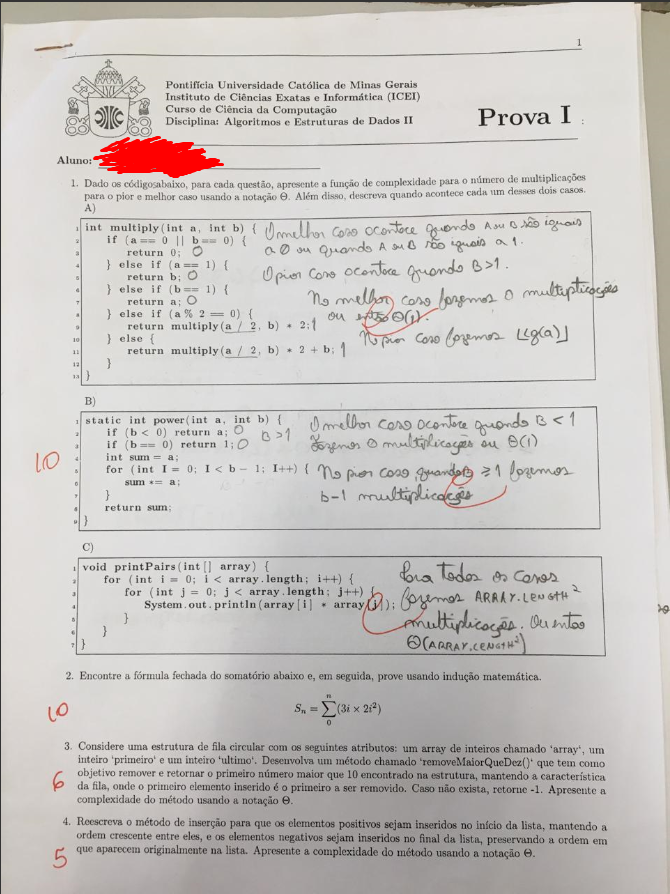 1
Pontifícia Universidade Católica de Minas Gerais
Instituto de Ciências Exatas e Informática (ICEI)
Curso de Ciência da Computação
Disciplina: Algoritmos e Estruturas de Dados II
Prova I
Aluno:
1. Dado os códigos abaixo, para cada questão, apresente a função de complexidade para o número de multiplicações
para o pior e melhor caso usando a notação Θ. Além disso, descreva quando acontece cada um desses dois casos.
A)
1 int multiply(int a, int b) {
2 if (a == 0 || b == 0) {
3 return 0; 0
4 } else if (a == 1) {
5 return b; 0
6 } else if (b == 1) {
7 return a; 0
8 } else if (a % 2 == 0) {
9 return multiply(a / 2, b) * 2; 1
10 } else {
11 return multiply(a / 2, b) * 2 + b; 1
12 }
13 }
O melhor caso acontece quando A ou B são iguais
a 0 ou quando A ou B são iguais a 1.
O pior caso acontece quando B>1.
No melhor caso fazemos 0 multiplicações
ou então Θ(1).
No pior caso fazemos ⌊lg(a)⌋
B)
10
1 static int power(int a, int b) {
2 if (b < 0) return a; 0 B>1
3 if (b == 0) return 1; 0
4 int sum = a;
5 for (int I = 0; I < b - 1; I++) {
6 sum *= a;
7 }
8 return sum;
9 }
O melhor caso acontece quando B < 1
fazemos 0 multiplicações ou Θ(1)
No pior caso, quando B ≥ 1 fazemos
b-1 multiplicações
C)
1 void printPairs(int[] array) {
2 for (int i = 0; i < array.length; i++) {
3 for (int j = 0; j < array.length; j++) {
4 System.out.println(array[i] * array[j]);
5 }
6 }
7 }
Para todos os casos
fazemos ARRAY.LENGTH²
multiplicações. Ou então
Θ(ARRAY.LENGTH²)
2. Encontre a fórmula fechada do somatório abaixo e, em seguida, prove usando indução matemática.
10
Sₙ = ∑ⁿ₀ (3i × 2i²)
3. Considere uma estrutura de fila circular com os seguintes atributos: um array de inteiros chamado 'array', um
inteiro 'primeiro' e um inteiro 'ultimo'. Desenvolva um método chamado 'removeMaiorQueDez()' que tem como
6 objetivo remover e retornar o primeiro número maior que 10 encontrado na estrutura, mantendo a característica
da fila, onde o primeiro elemento inserido é o primeiro a ser removido. Caso não exista, retorne -1. Apresente a
complexidade do método usando a notação Θ.
4. Reescreva o método de inserção para que os elementos positivos sejam inseridos no início da lista, mantendo a
ordem crescente entre eles, e os elementos negativos sejam inseridos no final da lista, preservando a ordem em
5 que aparecem originalmente na lista. Apresente a complexidade do método usando a notação Θ.